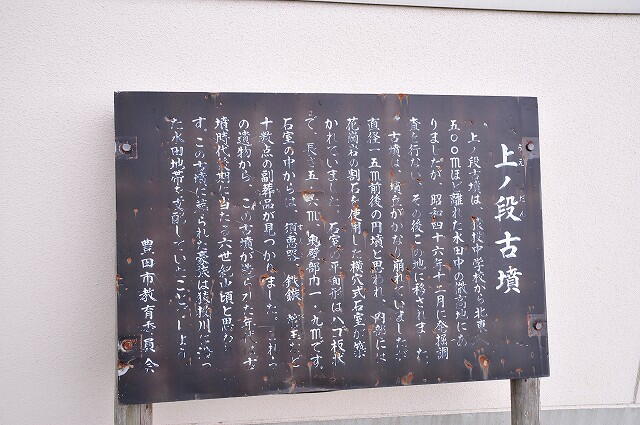 上ノ段古墳
うえ だん
上ノ段古墳は、猿投中学校から北東へ
五〇〇mほど離れた水田中の微高地にあ
りましたが、昭和四十六年十二月に発掘調
査を行ない、その後この地に移されました。
古墳は、墳丘がかなり崩れていましたが
直径一五m前後の円墳と思われ、内部には
花崗岩の割石を使用した横穴式石室が築
かれていました。石室の平面形はハゴ板状
で、長さ五・六m、奥壁部巾一・九mです。
石室の中からは、須恵器、鉄鏃、など
十数点の副葬品が見つかりました。これら
の遺物から、この古墳が造られた年代は古
墳時代後期に当たる六世紀の頃と思わ
す。この古墳に葬られた豪族は猿投川に沿っ
た水田地帯を支配していたことでしょう
豊田市教育委員会